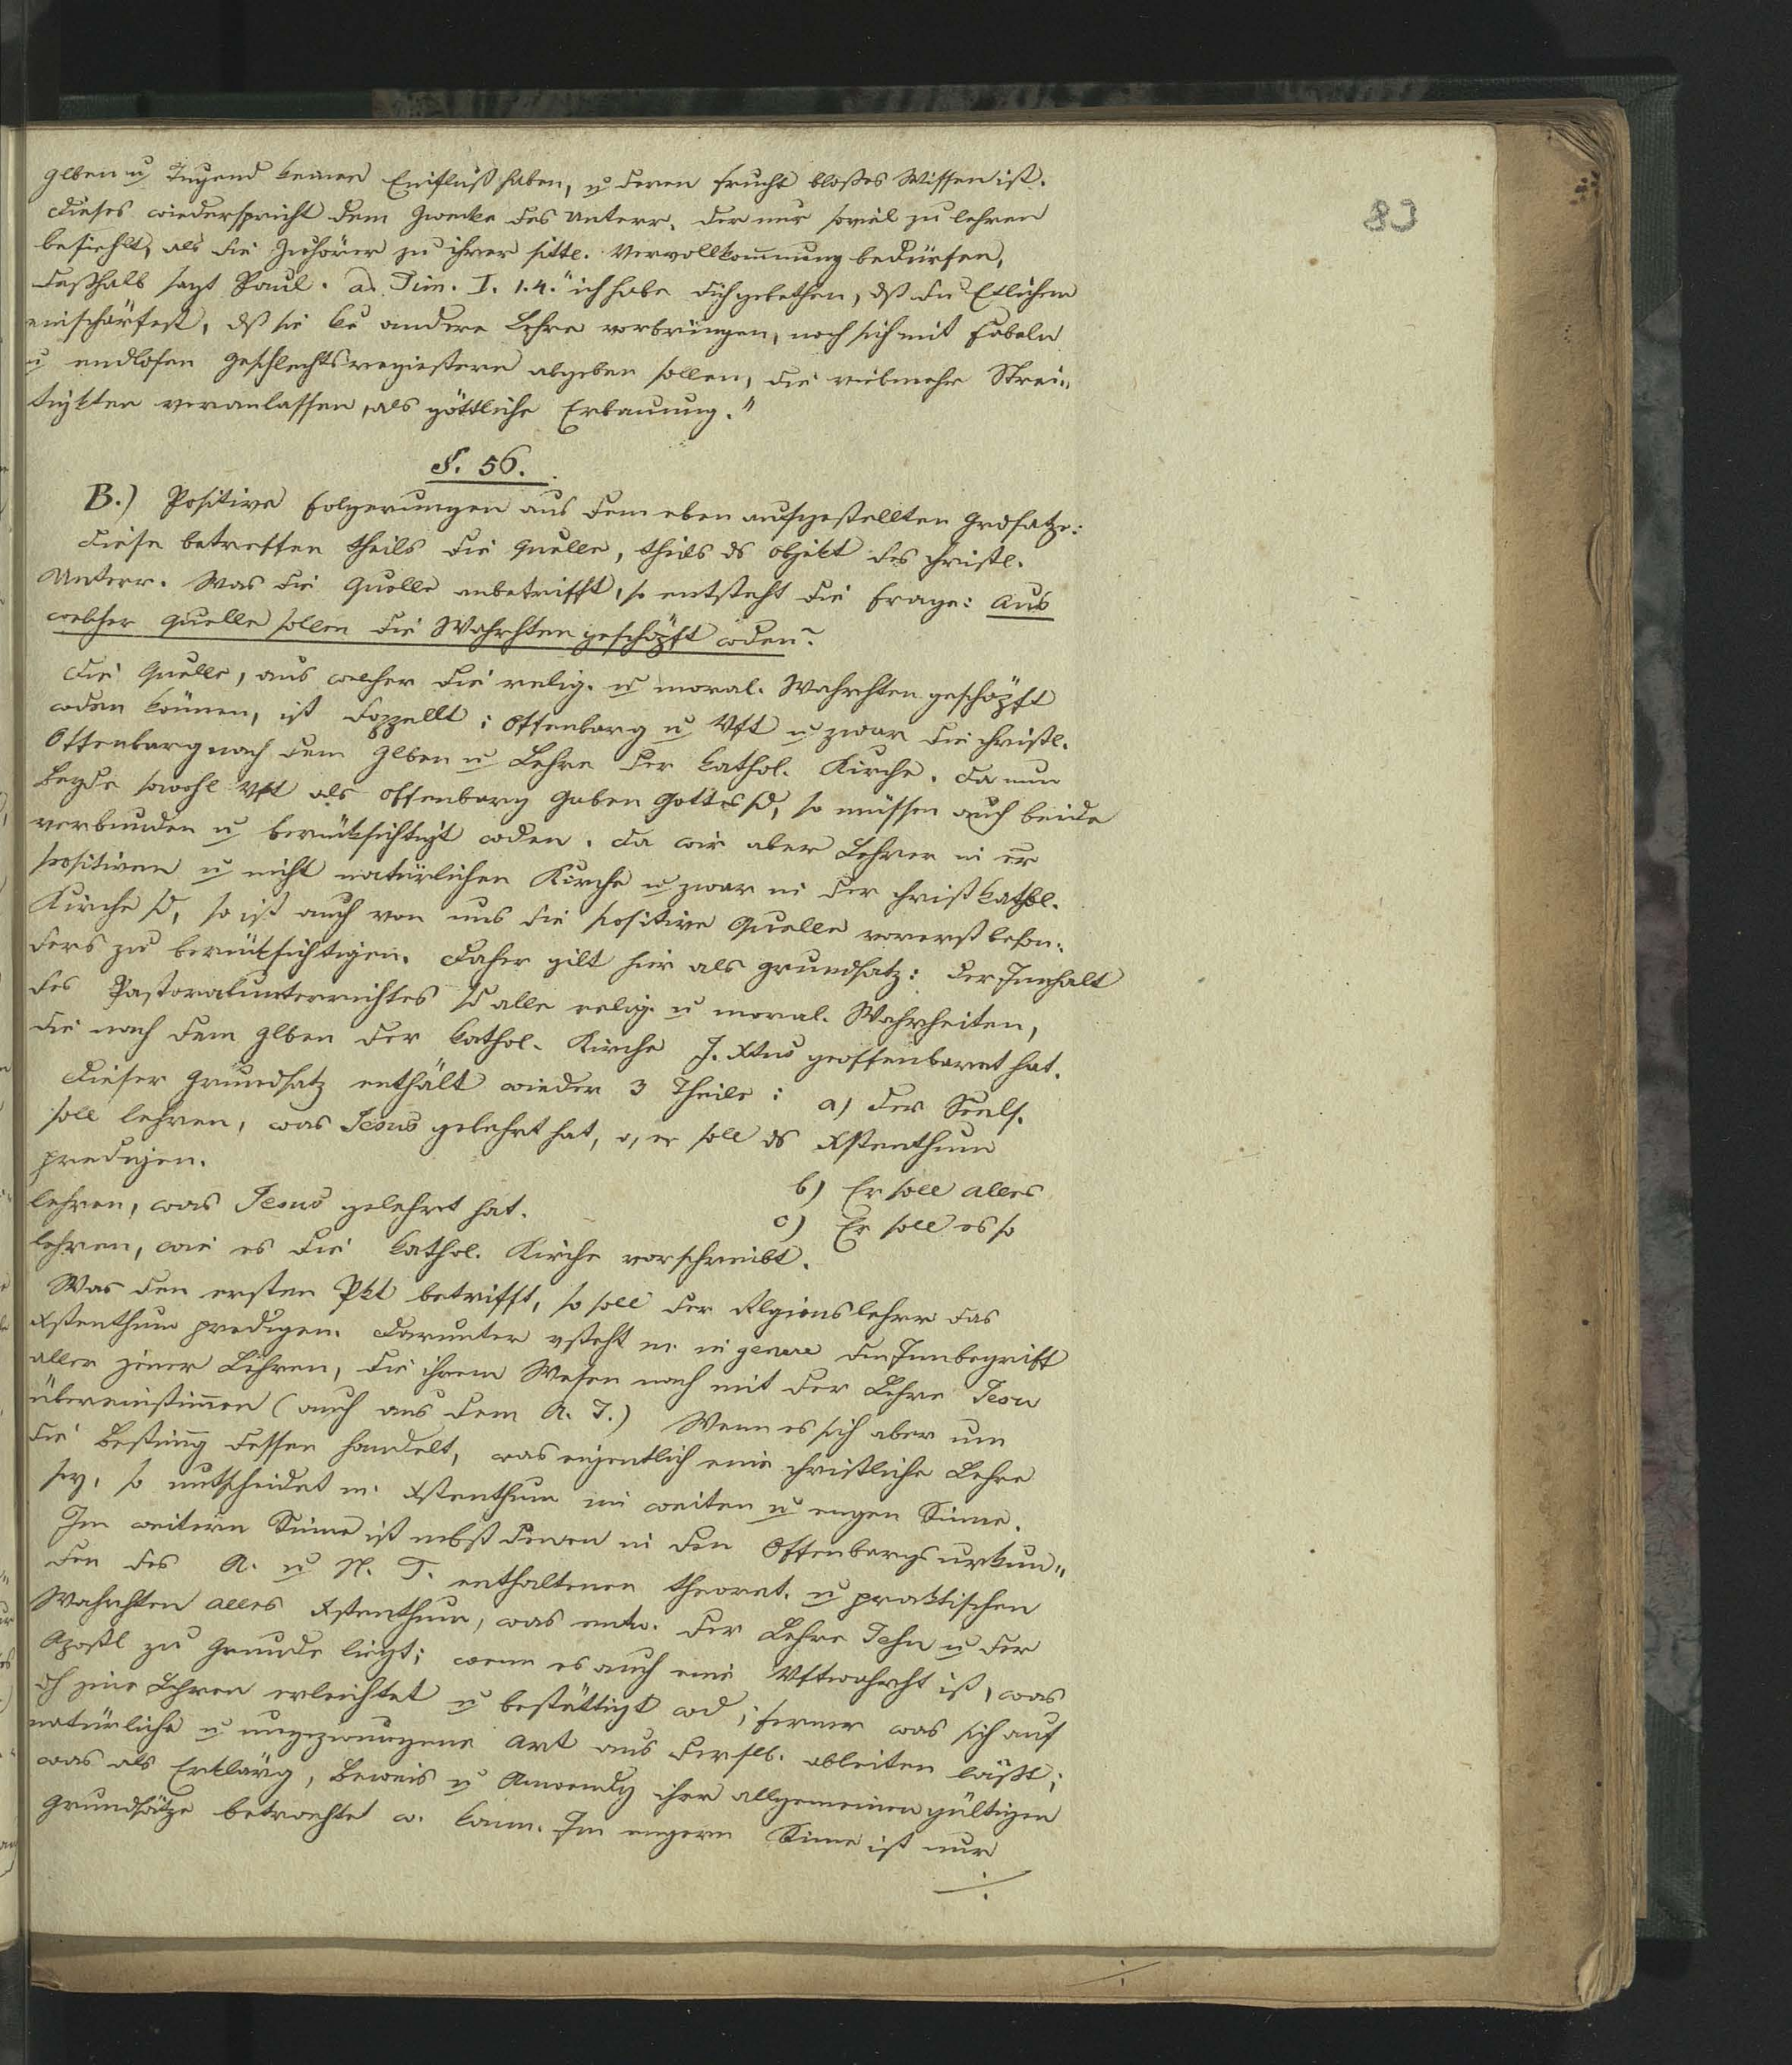 glben u Tugend keinen Einfluß haben, u deren Frucht bloßes Wissen ist.
Dieses wiederspricht dem Zwecke des Unterr. der nur soviel zu lehren
befiehlt, als die Zuhörer zu ihrer sittl. Vervollkommnung bedürfen,
deßhalb sagt Paul. ad Tim. I. 1.4. "ich habe dich gebethen, dß du Etlichen
einschärfest, dß sie ke andere Lehre vorbringen, noch sich mit Fabeln
u endlosen Geschlechtsregistern abgeben sollen, die vielmehr Strei-
tigkten veranlassen, als göttliche Erbauung."
§. 56.
B.) Positive Folgerungen aus dem eben aufgestellten Grdsatze:
Diese betreffen theils die Quelle, theils ds Objekt des christl.
Unterr. Was die Quelle anbetrifft, so entsteht die Frage: Aus
welcher Quelle sollen die Wahrhten geschöpft wden?
Die Quelle, aus welcher die relig. u moral. Wahrhten geschöpft
wden können, ist doppellt: Offenbarg u Vft u zwar die christl.
Offenbarg nach dem glben u Lehre der kathol. Kirche. Da nun
beyde sowohl Vft als Offenbarg Gaben Gottes sd, so müssen auch beide
verbunden u berücksichtigt wden. Da wir aber Lehrer in er
positiven u nicht natürlichen Kirche u zwar in der christkathol.
Kirche sd, so ist auch von uns die positive Quelle vorerst beson-
ders zu berücksichtigen. Daher gilt hier als Grundsatz: Der Innhalt
des Pastoralunterrichtes sd alle relig. u moral. Wahrheiten,
die nach dem glben der kathol. Kirche J. Xtus geoffenbaret hat.
Dieser Grundsatz enthält wieder 3 Theile: a) Der Seels.
soll lehren, was Jesus gelehrt hat, o, er soll ds Xstenthum
predigen.
b) Er soll alles
lehren, was Jesus gelehrt hat.
c) Er soll es so
lehren, wie es die kathol. Kirche vorschreibt.
Was den ersten Pkt betrifft, so soll der Rlgionslehrer das
Xstenthum predigen. Darunter vsteht m. in genere den Innbegriff
aller jener Lehren, die ihrem Wesen nach mit der Lehre Jesu
übereinstimmen (auch aus dem A. T.) Wenn es sich aber um
die Bestimmg dessen handelt, was eigentlich eine christliche Lehre
sey, so unterscheidet m. Xstenthum im weiten u engen Sinne.
Im weitern Sinne ist nebst denen in den Offenbargsurkun-
den des A. u N. T. enthaltenen theoret. u praktischen
Wahrhten alles Xstenthum, was entw. der Lehre Jesu u der
Apostl zu Grunde liegt; wenn es auch eine Vftwahrht ist, was
dch jene Lehren erleichtet u bestättigt wd; ferner was sich auf
natürliche u ungezwungene Art aus derslb. ableiten läßt;
was als Erklärg, Beweis u Anwendg ihrer allgemeinen gültigen
Grundsätze betrachtet w. kann. Im engern Sinne ist nur